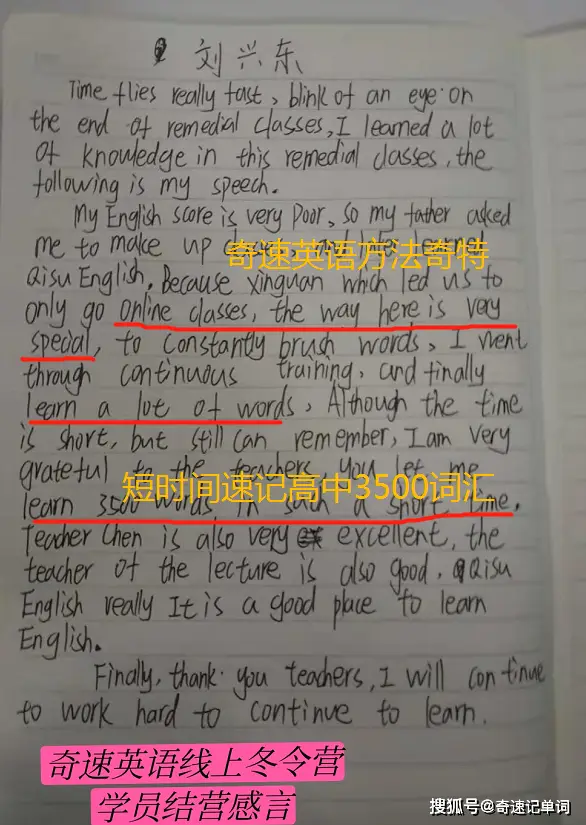 刘兴东
Time flies really fast, blink of an eye on
the end of remedial classes, I learned a lot
of knowledge in this remedial classes, the
following is my speech.
My English score is very poor, so my father asked
me to make up
奇速英语方法奇特
Qisu English. Because xinguan which led us to
only go online classes, the way here is very
special, to constantly brush words, I went
through continuous training, and finally
learn a lot of words, Although the time
is short, but still can remember, I am very
grateful to the teachers, you let me
短时间速记高中3500词汇
learn 3500 words in such a short time.
Teacher Chen is also very excellent, the
teacher of the lecture is also good. Qisu
English really It is a good place to learn
English.
Finally, thank you teachers, I will continue
to work hard to continue to learn.
奇速英语线上冬令营
学员结营感言
搜狐号@奇速记单词